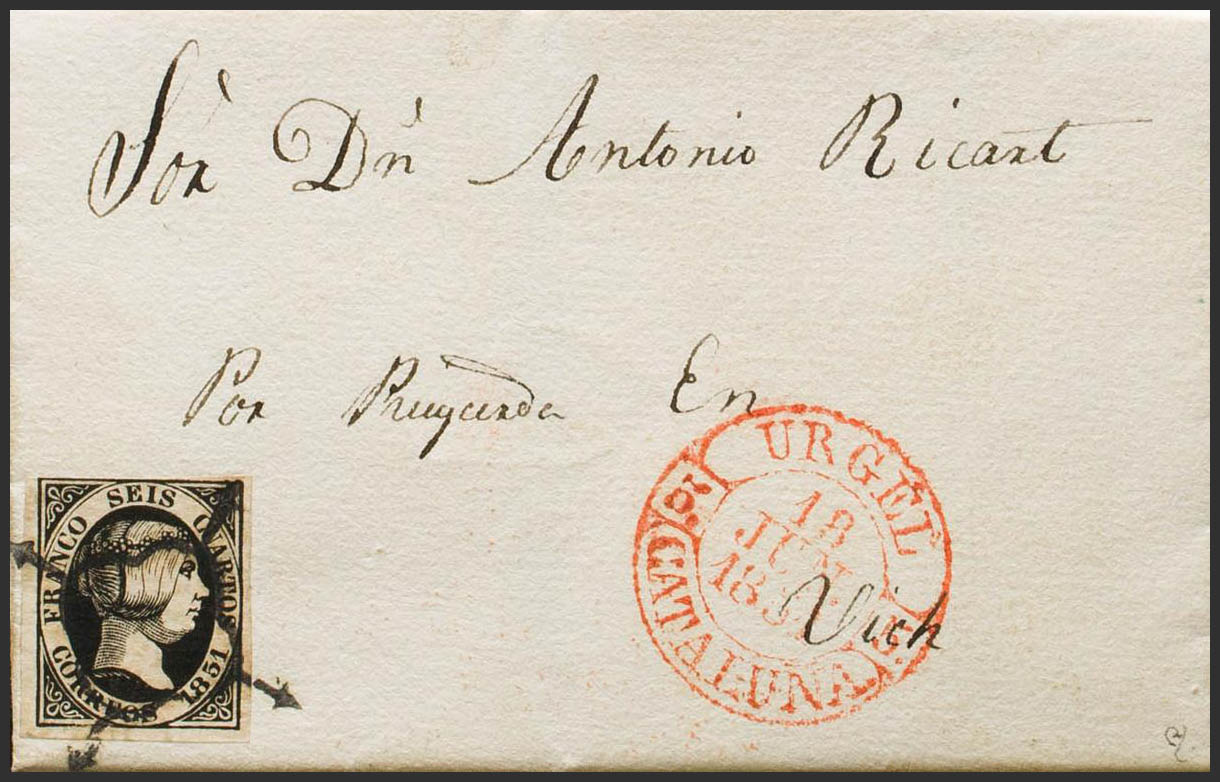 Sor Dn Antonio Ricart
Por Puigcerda En
Vich
URGEL
18
JUN
1851
CATALUÑA
FRANCO SEIS CUARTOS
CORREOS 1851